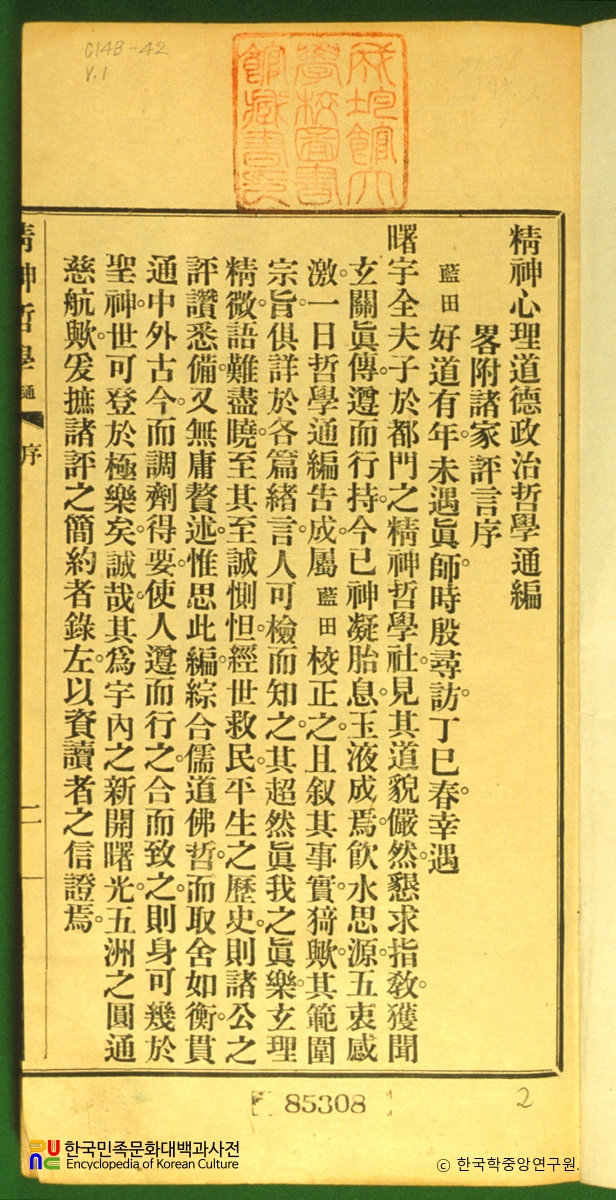 C14B-42
V.1
成均館大
學校圖書
館藏書印
精神心理道德政治哲學通編
畧附諸家評言序
藍田好道有年。未遇眞師。時殷尋訪。丁巳春。幸遇
曙宇全夫子於都門之精神哲學社。見其道貌儼然。懇求指敎。獲聞
玄關眞傳。遵而行持。今已神凝胎息。玉液成焉。飮水思源。五衷感
激。一日哲學通編告成。屬藍田校正之。且叙其事實。猗歟。其範圍
宗旨。俱詳於各篇緖言。人可檢而知之。其超然眞我之眞樂。玄理
精微。語難盡曉。至其至誠惻怛。經世救民。平生之歷史。則諸公之
評讚悉備。又無庸贅述。惟思此編綜合儒道佛哲。而取舍如衡。貫
通中外古今。而調劑得要。使人遵而行之。合而致之。則身可幾於
聖神。世可登於極樂矣。誠哉。其爲宇內之新開曙光。五洲之圓通
慈航歟。爰摭諸評之簡約者錄左。以資讀者之信證焉。
精神哲學 通
序
二
85308
2
한국민족문화대백과사전
Encyclopedia of Korean Culture
© 한국학중앙연구원.